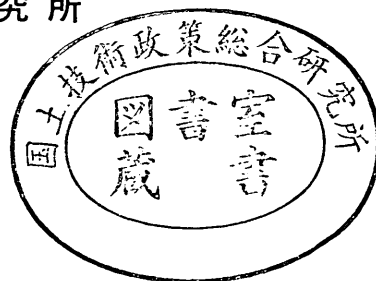 究所
国土技術政策総合研究所
図書室
蔵書